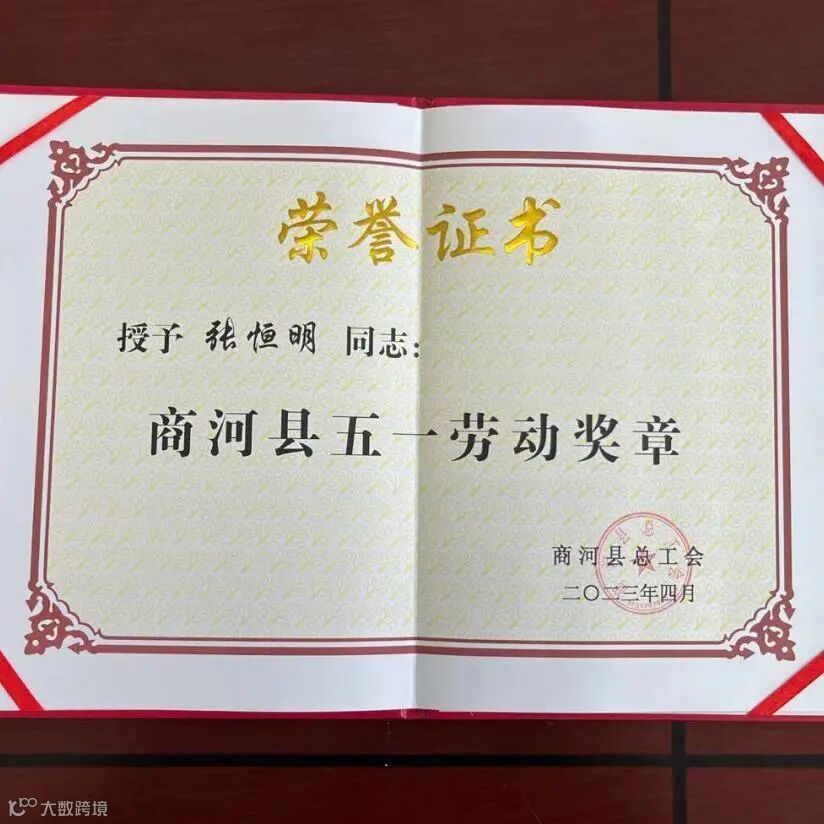 荣誉证书
授予 张恒明 同志:
商河县五一劳动奖章
商河县总工会
二〇二三年四月
大数跨境